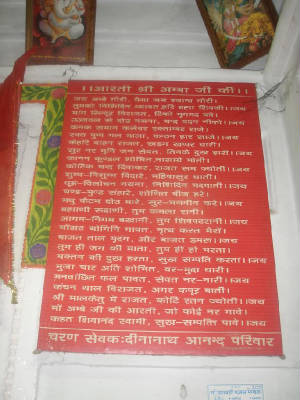 ।।आरती श्री अम्बा जी की।।
जय अम्बे गौरी, मैया जय श्यामा गौरी।
तुमको निशिदिन ध्यावत हरि ब्रह्मा शिवजी।।जय
मांग सिन्दूर विराजत, टीको मृगमद को।
उज्जवल से दोउ नयना, चन्द्र वदन नीको।।जय
कनक समान कलेवर रक्ताम्बर राजे।
रक्त पुष्प गल माला, कण्ठन हार साजे।।जय
केहरि वाहन राजत, खड्ग खप्पर धारी।
सुर नर मुनि जन सेवत, तिनके दुख हारी।।जय
कानन कुण्डल शोभित,नासाग्रे मोती।
कोटिक चन्द्र दिवाकर, राजत सम ज्योती।।जय
शुम्भ-निशुम्भ विदारे, महिषासुर घाती।
धूम्र-विलोचन नयना, निशिदिन मदमाती।।जय
चण्ड-मुण्ड संहारे, शोणित बीज हरे।
मधु कैटभ दोउ मारे, सुर-भयहीन करे।।जय
ब्रह्माणी रुद्राणी, तुम कमला रानी।
आगम-निगम बखानी, तुम शिवपटरानी।।जय
चौंसठ योगिनि गावत, नृत्य करत भैरों।
बाजत ताल मृदंग, और बाजत डमरू।।जय
तुम ही जग की माता, तुम ही हो भरता।
भक्तन की दुख हरता, सुख सम्पति करता।।जय
भुजा चार अति शोभित, वर-मुद्रा धारी।
मनवांछित फल पावत, सेवत नर-नारी।।जय
कंचन थाल विराजत, अगर कपूर बाती।
श्री मालकेतु में राजत, कोटि रतन ज्योती।।जय
माँ अम्बे जी की आरती, जो कोई नर गावे।
कहत शिवानंद स्वामी, सुख-सम्पति पावे।।जय
चरण सेवकःदीनानाथ आनन्द परिवार